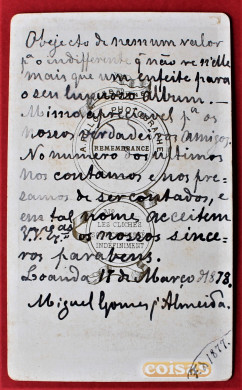 Objecto de nenhum valor
pª o indifferente q não ve n'elle
mais que um enfeite para
o seu luxuoso album. —
Mimo apreciavel pª os
nossos verdadeiros amigos.
No numero dos ultimos
nos contamos e nos pre-
samos de ser contados, e
em tal nome acceitem
V.V. Exas os nossos since-
ros parabens.
Loanda 18 de Março de 1878.
Miguel Gomes d'Almeida.
PHOTOGRAPHE
REMEMBRANCE
LES CLICHÉS
INDEFINIMENT
1877.
coisas